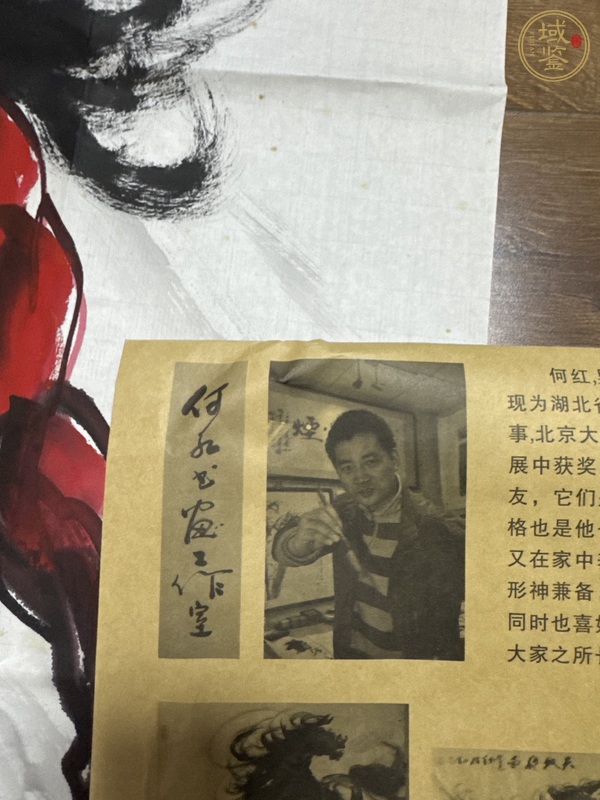 域鉴
何红书画工作室
何红,
现为湖北省
事,北京大
展中获奖
友，它们
格也是他
又在家中
形神兼备
同时也喜
大家之所